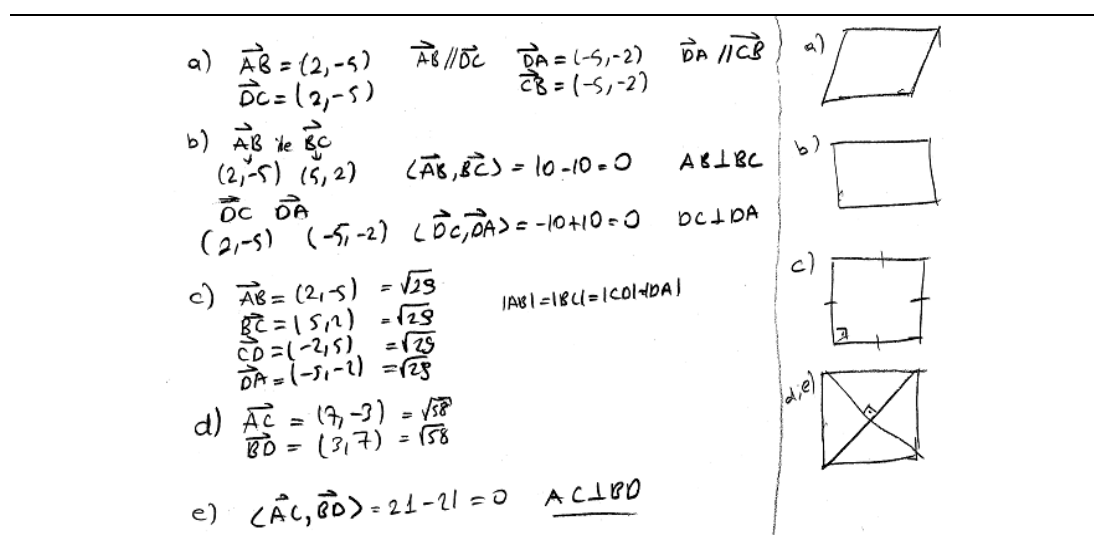 a) AB = (2,-5) AB // DC DA = (-5,-2) DA // CB
DC = (2,-5) CB = (-5,-2)
b) AB ile BC
(2,-5) (5,2) ⟨AB, BC⟩ = 10-10=0 AB⊥BC
DC DA
(2,-5) (-5,-2) ⟨DC, DA⟩ = -10+10=0 DC⊥DA
c) AB = (2,-5) = √29 |AB|=|BC|=|CD|=|DA|
BC = (5,2) = √29
CD = (-2,5) = √29
DA = (-5,-2) = √29
d) AC = (7,-3) = √58
BD = (3,7) = √58
e) ⟨AC, BD⟩ = 21-21 = 0 AC⊥BD
a)
b)
c)
d,e)